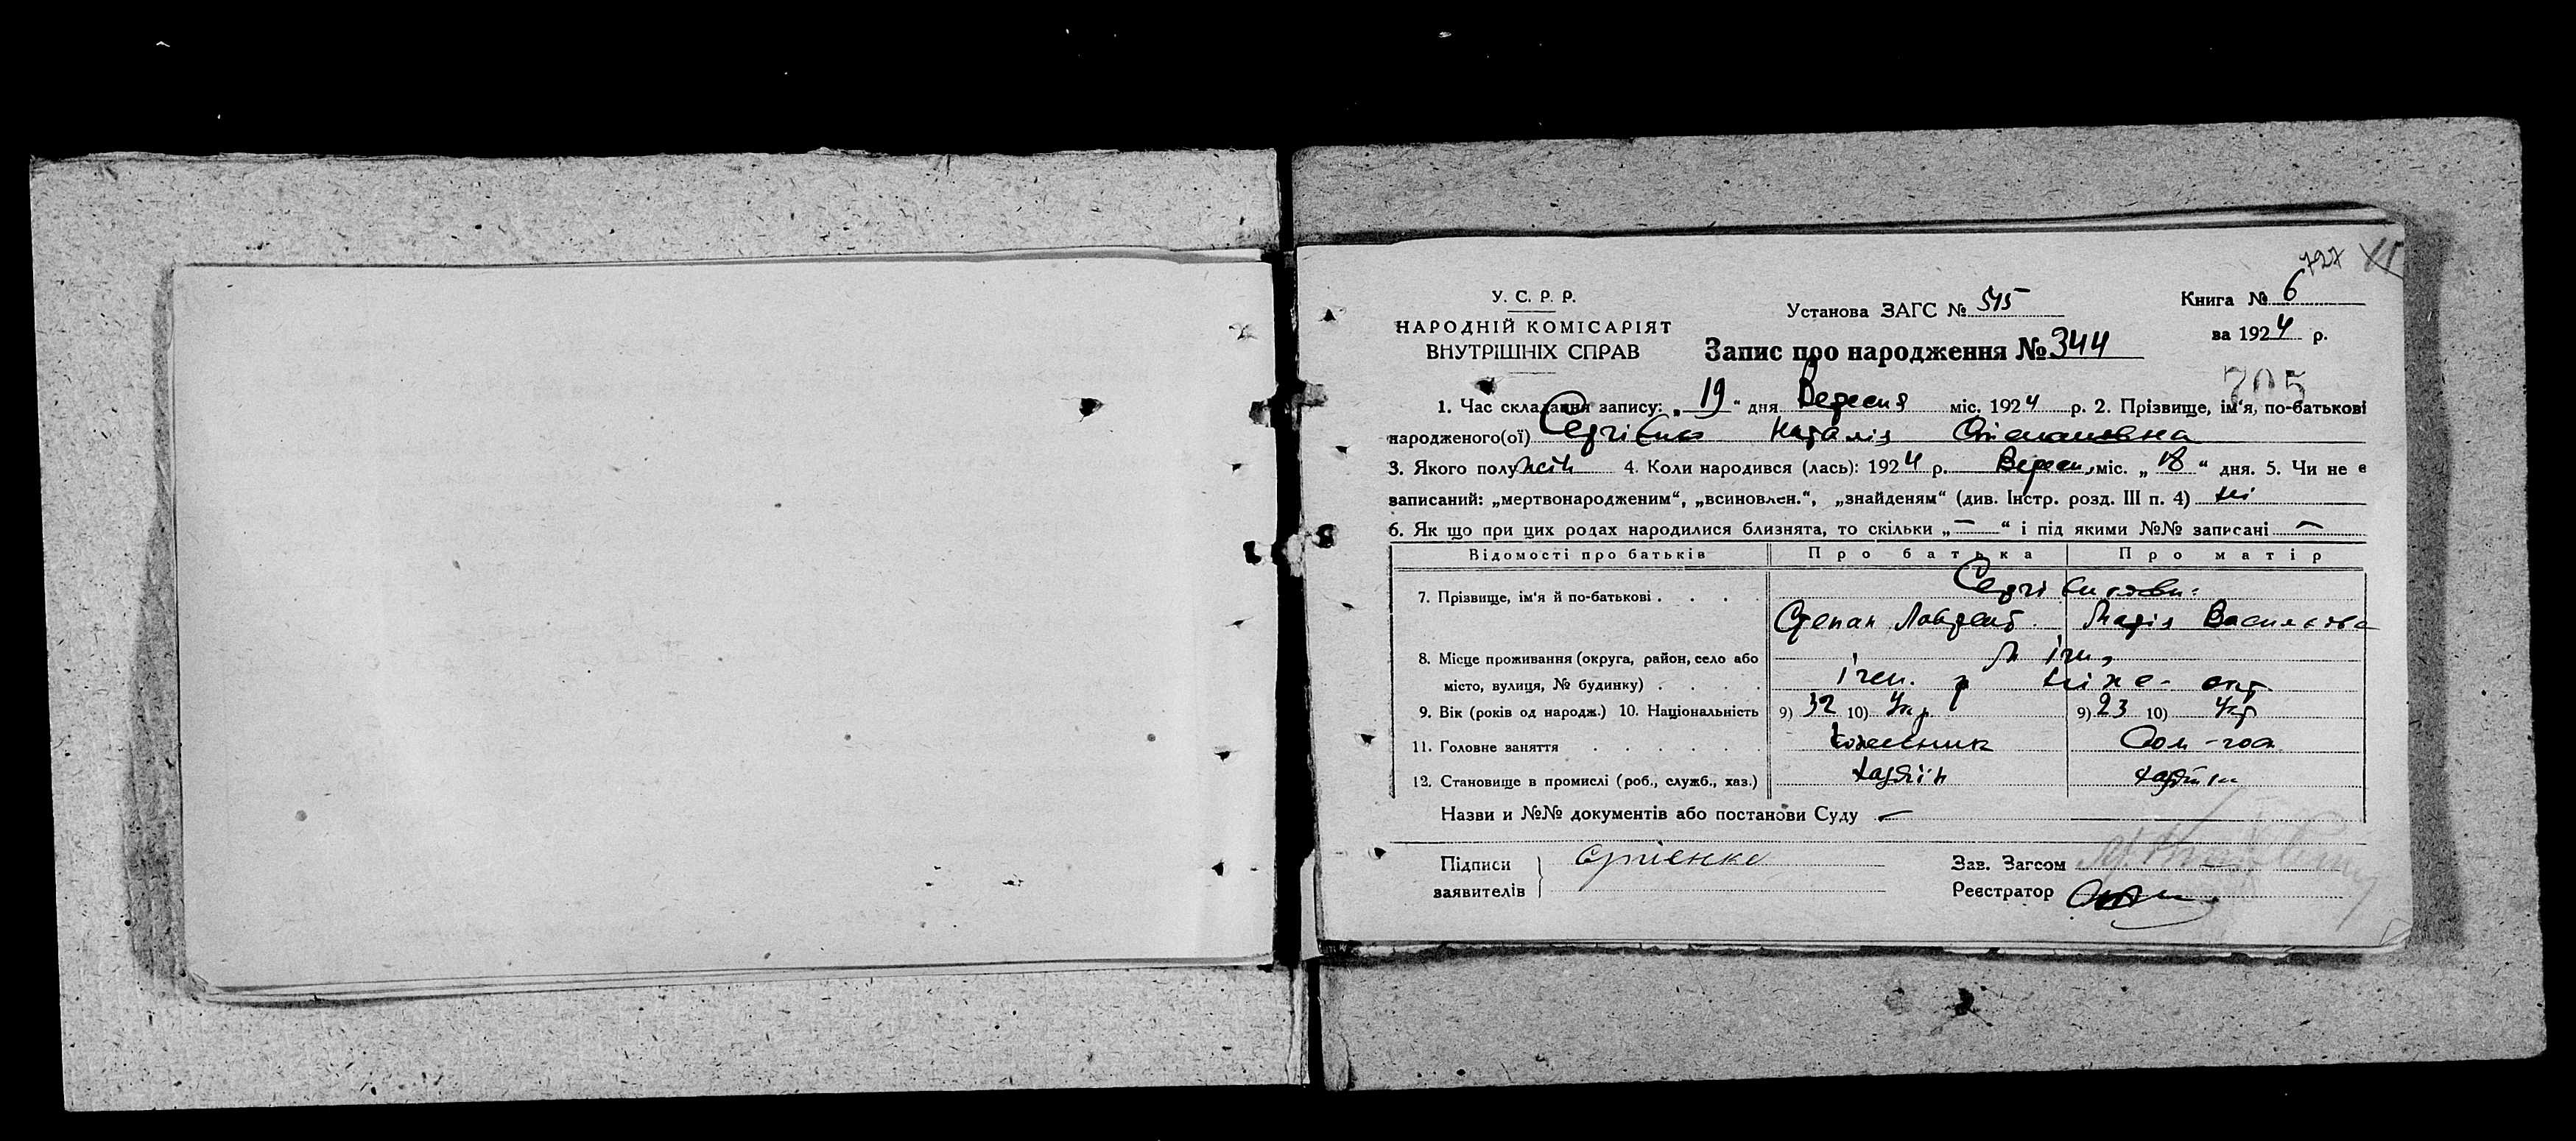 727
У. С. Р. Р.
НАРОДНІЙ КОМІСАРІЯТ
ВНУТРІШНІХ СПРАВ
Установа ЗАГС № 515
Запис про народження № 344
Книга № 6
за 1924 р.
705
1. Час складання запису: „ 19 “ дня Вересня міс. 1924 р. 2. Прізвище, ім'я, по-батькові
народженого(ої) Наталія Степановна
3. Якого полу жін 4. Коли народився (лась): 1924 р. Вересн міс. „ 18 “ дня. 5. Чи не є
записаний: „мертвонародженим“, „всиновлен.“, „знайденям“ (див. Інстр. розд. III п. 4) ні
6. Як що при цих родах народилися близнята, то скільки „ — “ і під якими №№ записані —
Відомості про батьків Про батька Про матір
7. Прізвище, ім'я й по-батькові . . . .
Степан Лаврент. Марія Василівна
8. Місце проживання (округа, район, село або м Ічн,
місто, вулиця, № будинку) . . . . Ічен. р Ніже- окр
9. Вік (років од народж.) 10. Національність 9) 32 10) Укр 9) 23 10) Укр
11. Головне заняття . . . . . . Дом-гос
12. Становище в промислі (роб., служб., хаз.) хазяїн
Назви и №№ документів або постанови Суду —
Підписи
заявителів
Зав. Загсом
Реєстратор